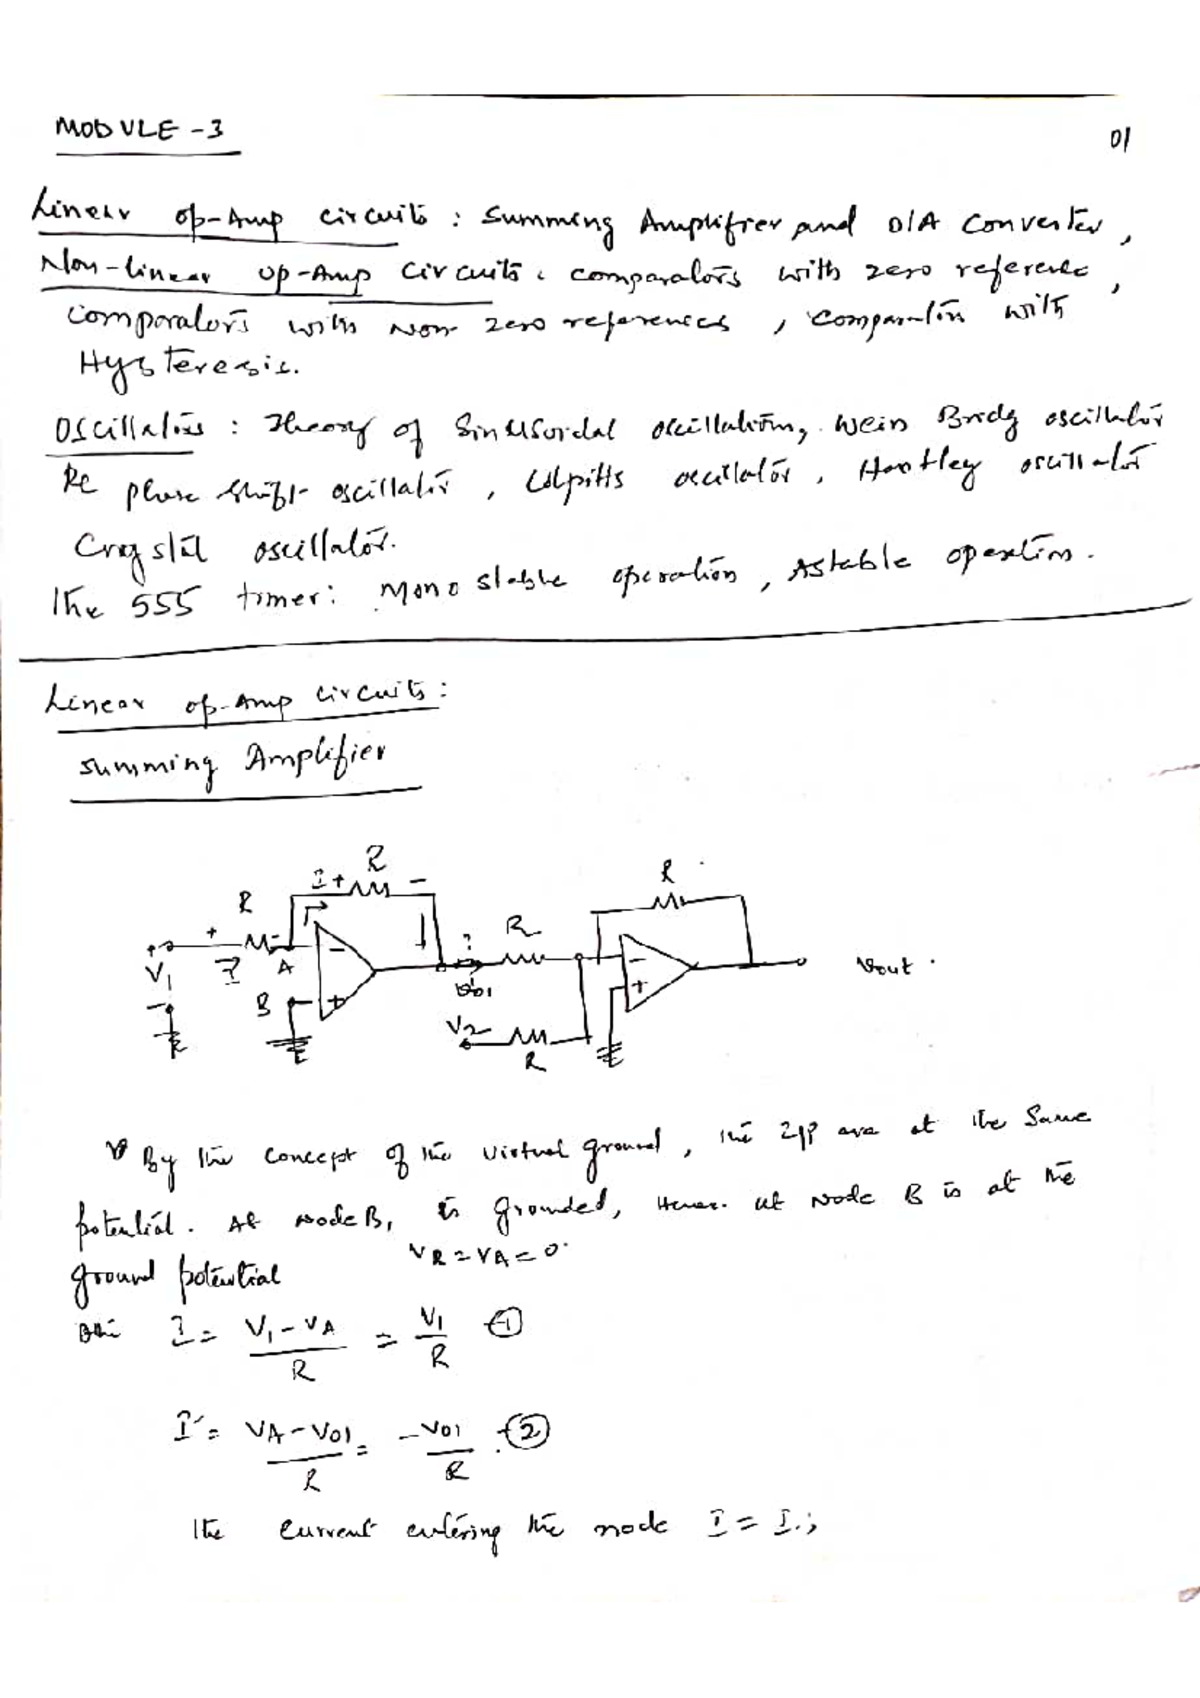 MODULE -3
01
Linear op-Amp circuits : Summing Amplifier and D/A Converter,
Non-linear op-Amp circuits : comparators with zero reference,
comparators with Non zero references, comparators with
Hysteresis.
Oscillators : Theory of Sinusoidal oscillation, Wein Bridg oscillator
Rc phase shift oscillator, Colpitts oscillator, Hartley oscillator
Crystal oscillator.
The 555 timer: Mono stable operation, Astable operation.
Linear op-Amp circuits :
summing Amplifier
R
I + R -
R
+ R
V1
A
B
R
V01
V2
R
- +
- +
Vout .
By the concept of the virtual ground, the I/P are at the same
potential. At node B, is grounded, Hence. at Node B is at the
ground potential VB = VA = 0.
I = V1 - VA / R = V1 / R -①
I' = VA - V01 / R = -V01 / R -②
The current entering the node I = I